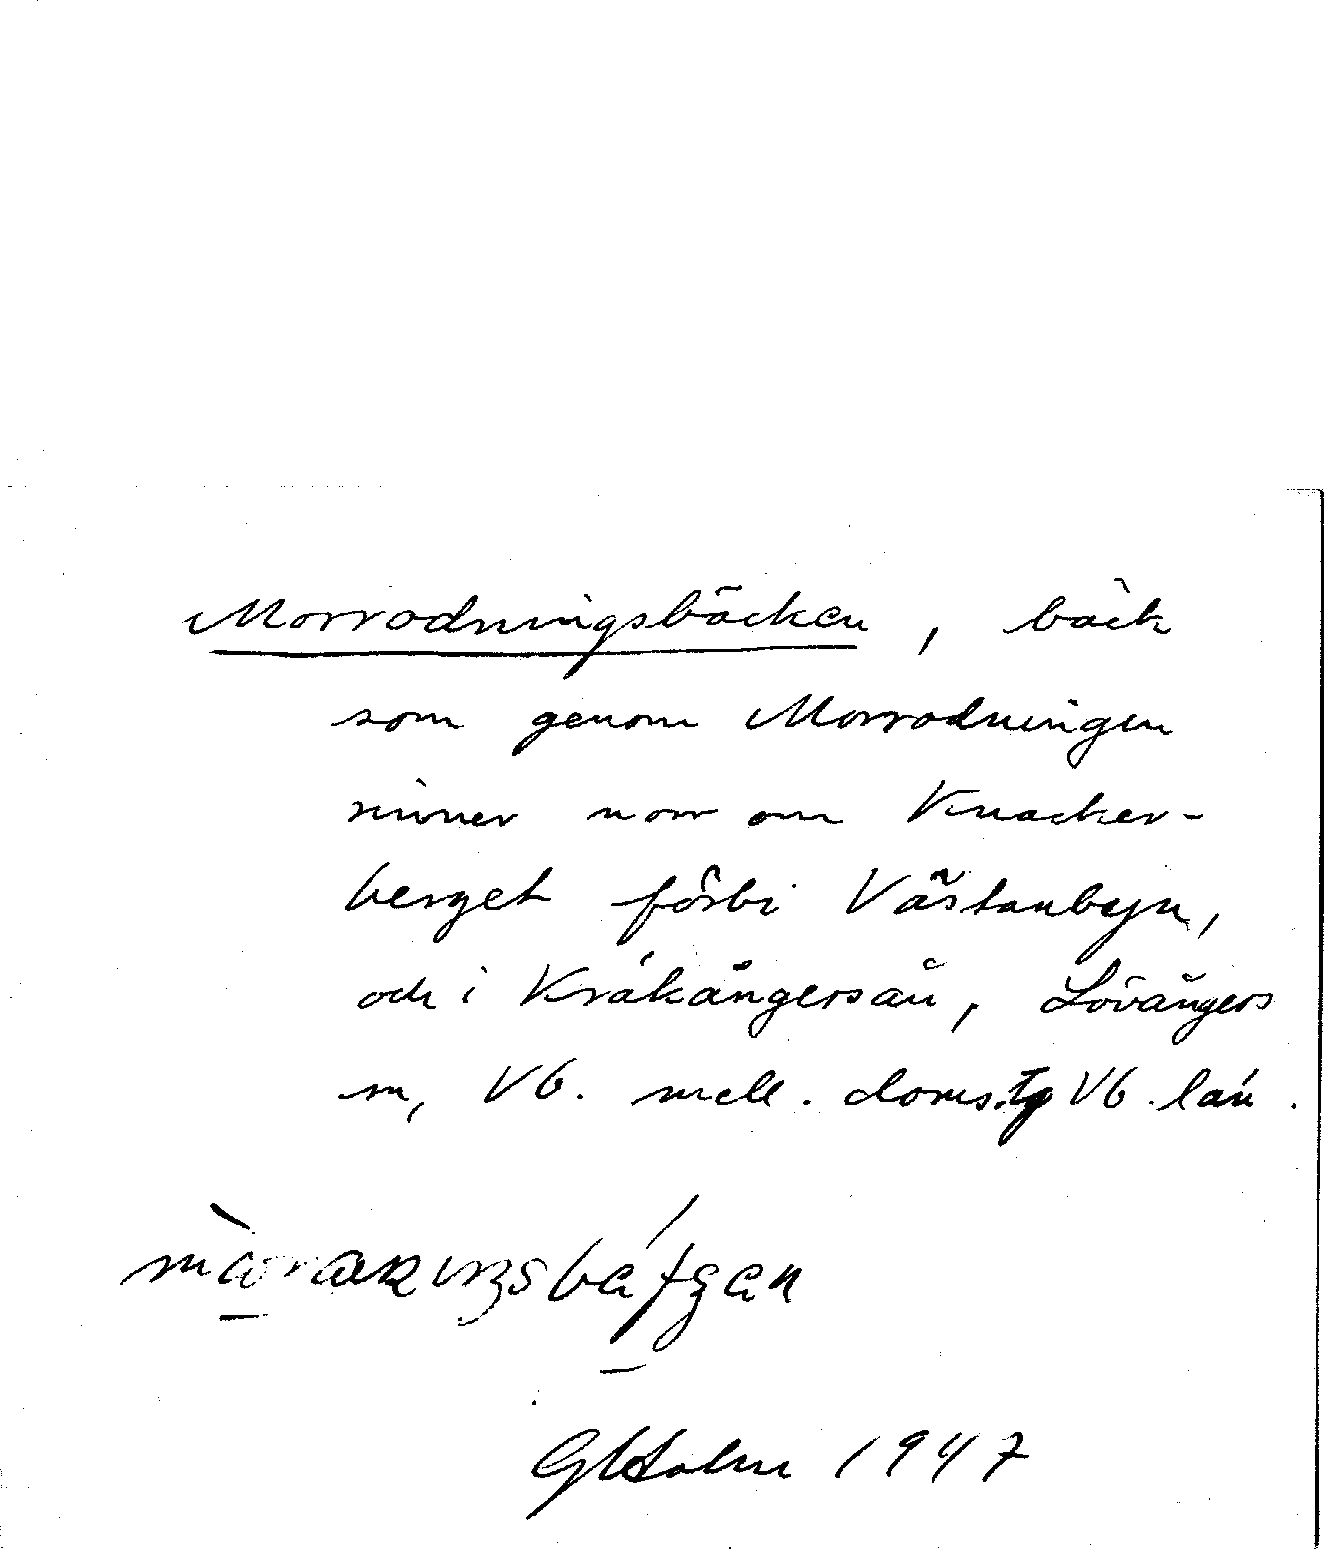 Morrodningsbäcken, bäck
som genom Morrodningen
rinner norr om Knacker-
berget förbi Västanbyn,
och i Kråkångersån, Lövångers
sn, Vb. mell. doms. Vb. län.
G Holm 1947